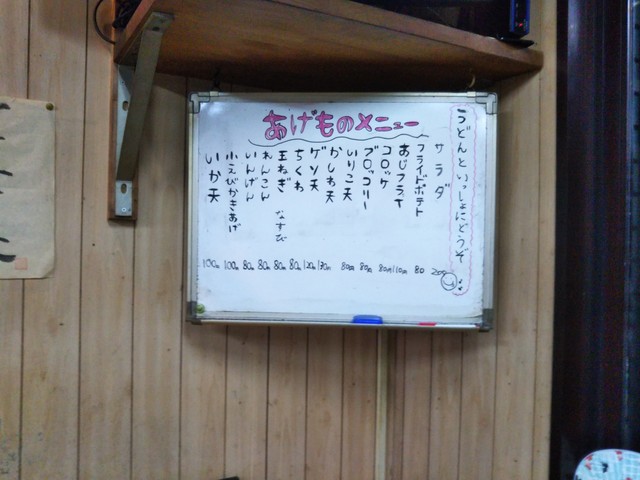 あげものメニュー
うどんといっしょにどうぞ
サラダ 200
フライドポテト 80
あじフライ 110円
コロッケ 80円
ブロッコリー 80円
いりこ天 80円
かしわ天
ゲソ天 120円
ちくわ 80円
玉ねぎ なすび 80円
れんこん 80円
いんげん 80円
小えびかきあげ 100円
いか天 100円